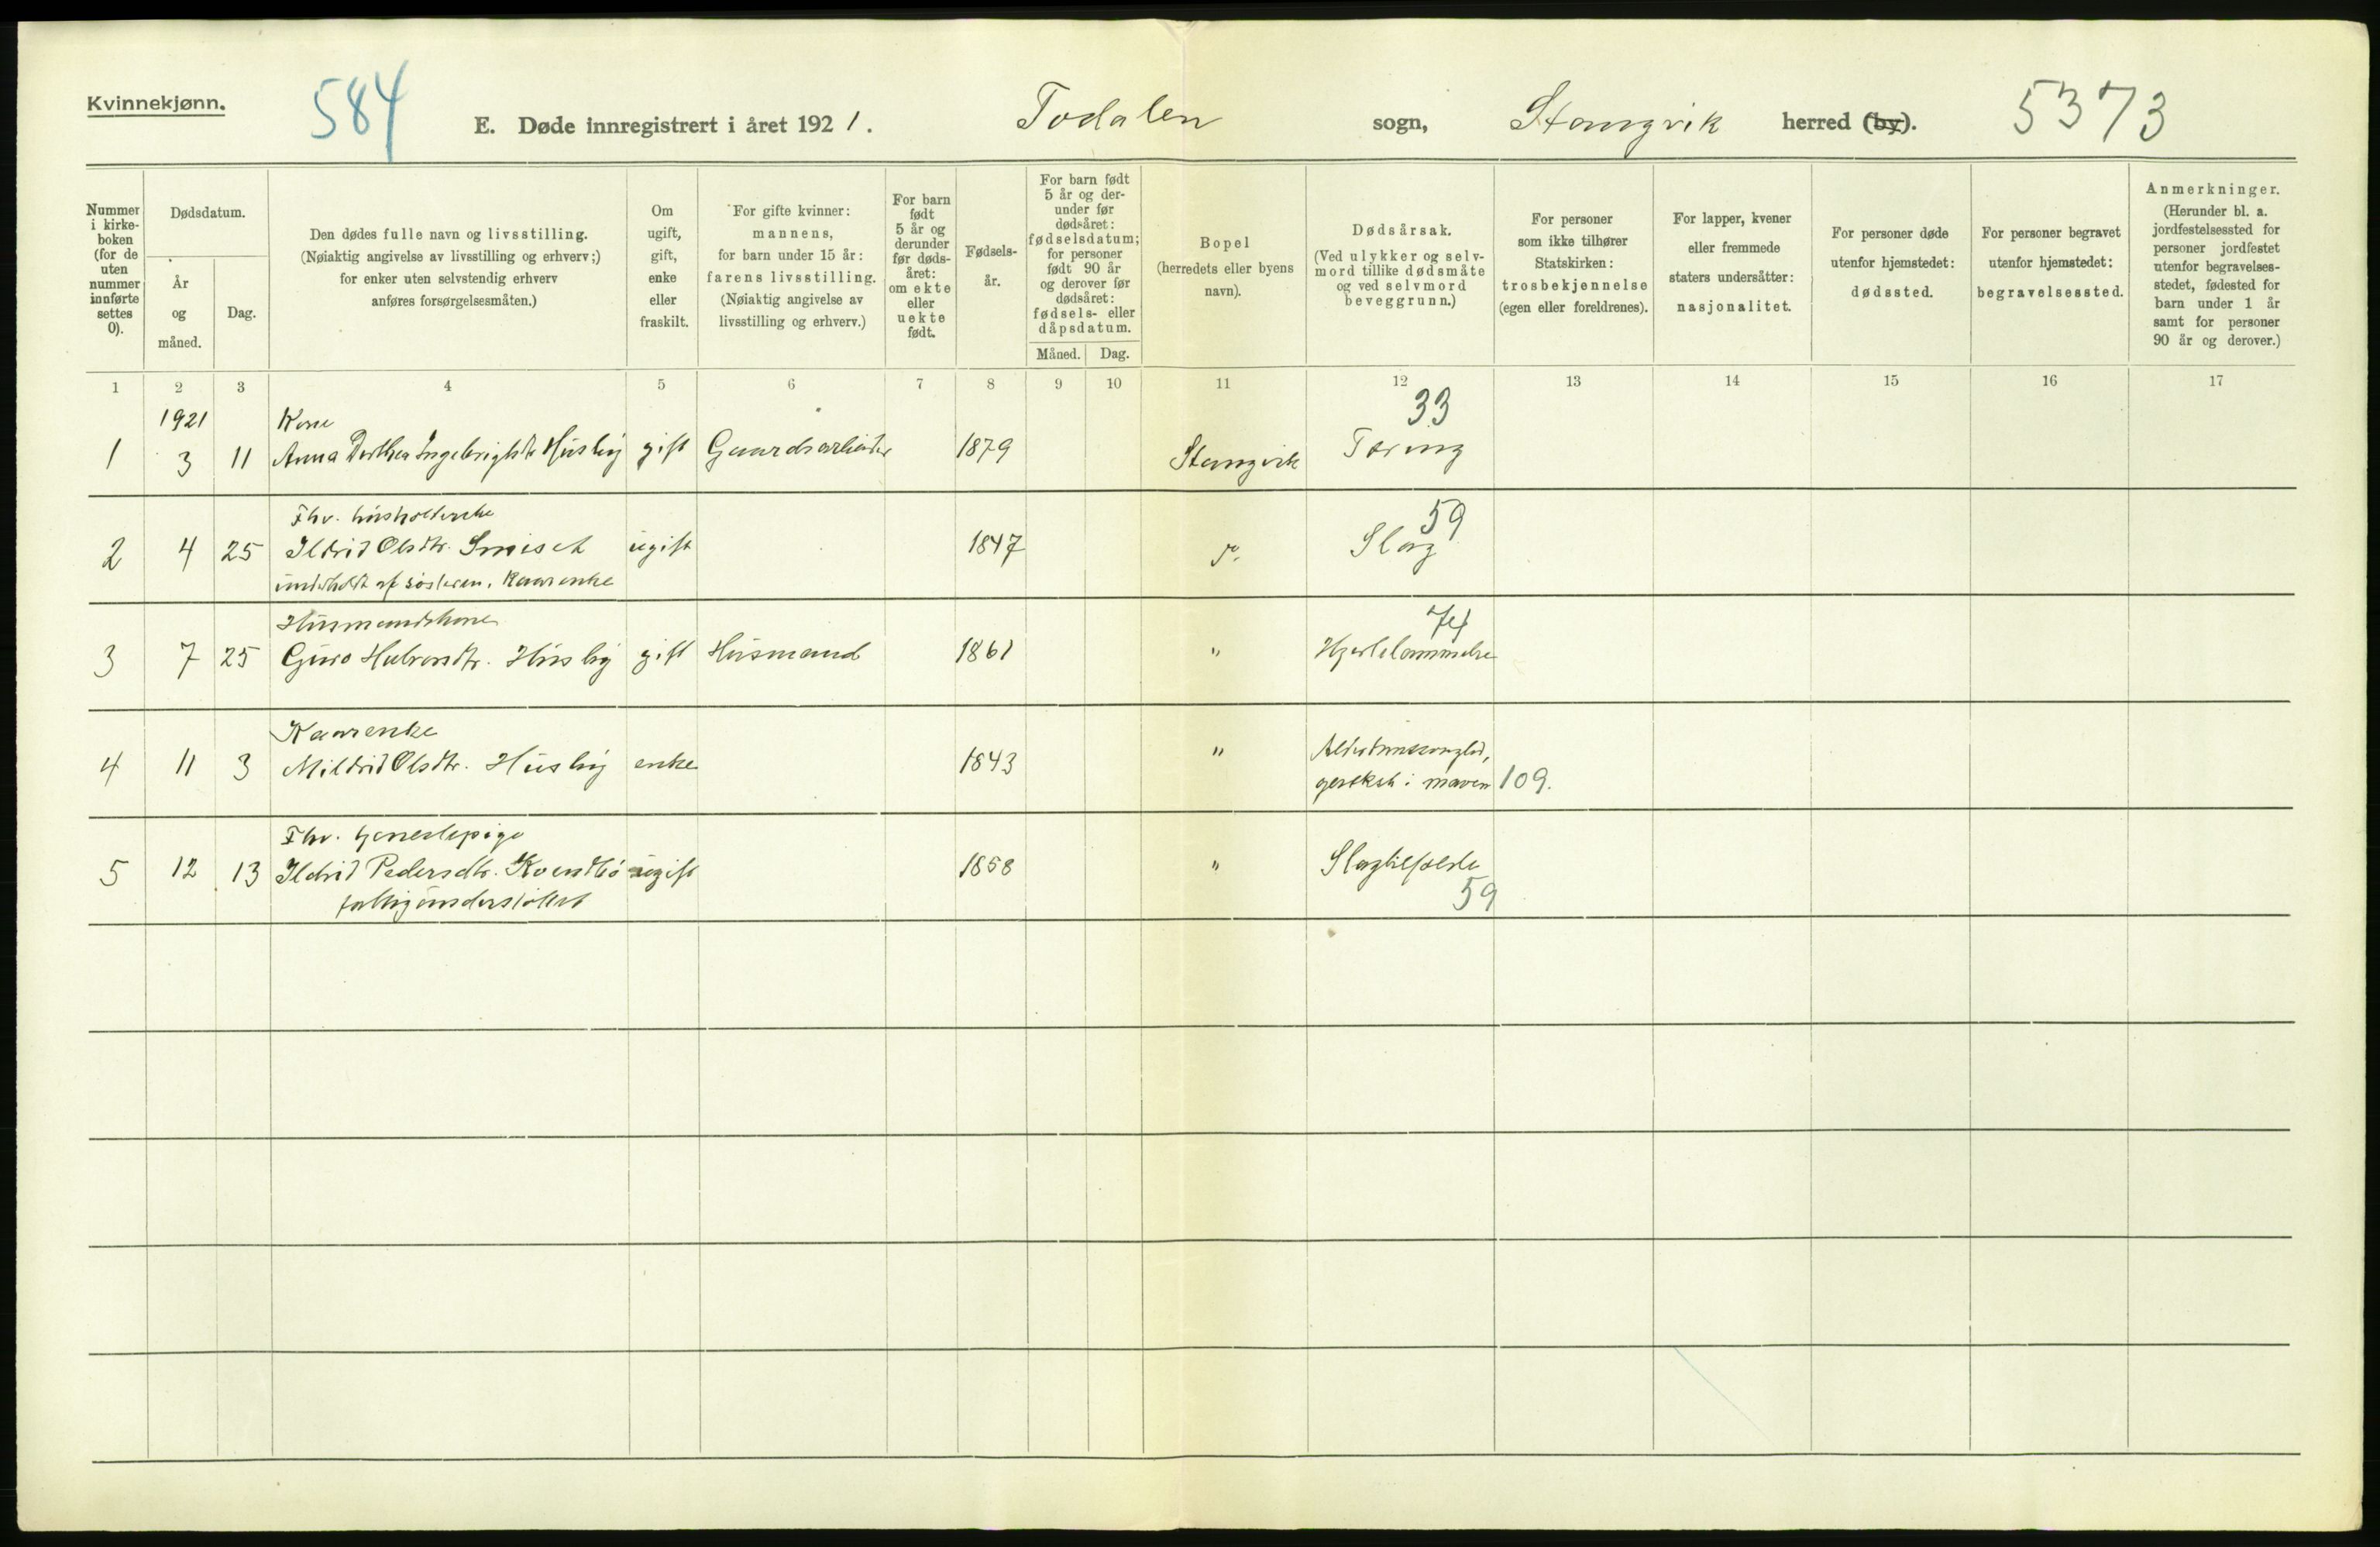 Kvinnekjønn.
584
E. Døde innregistrert i året 1921.
Todalen sogn, Stangvik herred (by).
5373
Nummer i kirke-boken (for de uten nummer innførte settes 0).
Dødsdatum.
År og måned.
Dag.
Den dødes fulle navn og livsstilling.
(Nøiaktig angivelse av livsstilling og erhverv;)
for enker uten selvstendig erhverv
anføres forsørgelsesmåten.)
Om ugift, gift, enke eller fraskilt.
For gifte kvinner:
mannens,
for barn under 15 år:
farens livsstilling.
(Nøiaktig angivelse av
livsstilling og erhverv.)
For barn født 5 år og derunder før døds-året: om ekte eller uekte født.
Fødsels-år.
For barn født 5 år og der-under før dødsåret: fødselsdatum; for personer født 90 år og derover før dødsåret: fødsels- eller dåpsdatum.
Måned. Dag.
Bopel
(herredets eller byens
navn).
Dødsårsak.
(Ved ulykker og selv-
mord tillike dødsmåte
og ved selvmord
beveggrunn.)
For personer
som ikke tilhører
Statskirken:
trosbekjennelse
(egen eller foreldrenes).
For lapper, kvener
eller fremmede
staters undersåtter:
nasjonalitet.
For personer døde
utenfor hjemstedet:
dødssted.
For personer begravet
utenfor hjemstedet:
begravelsessted.
Anmerkninger.
(Herunder bl. a.
jordfestelsessted for
personer jordfestet
utenfor begravelses-
stedet, fødested for
barn under 1 år
samt for personer
90 år og derover.)
1 2 3 4 5 6 7 8 9 10 11 12 13 14 15 16 17
1921 Kone 33
1 3 11 Anna Dorthea Ingebrigtsdtr Husby gift Gaardsarbeider 1879 Stangvik Tæring
Fhv. husholderske 59
2 4 25 Ildrid Olsdtr. ugift 1847 Slag
underholdt af søsteren, Kaarenke
Husmandskone 74
3 7 25 Guro Halvorsdtr. Husby gift Husmand 1861 " Hjertelammelse
Kaarenke
4 11 3 Mildrid Olsdtr. Husby enke 1843 " Alderdomssvaghed,
i maven 109.
Fhv. tjenestepige
5 12 13 Ildrid Pedersdtr. ugift 1858 " Slagtilfælde
fattigunderstøttet 59